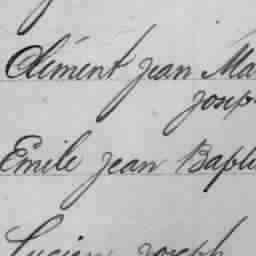 Clément jean Ma
josep
Emile jean Bapti
Lucien joseph